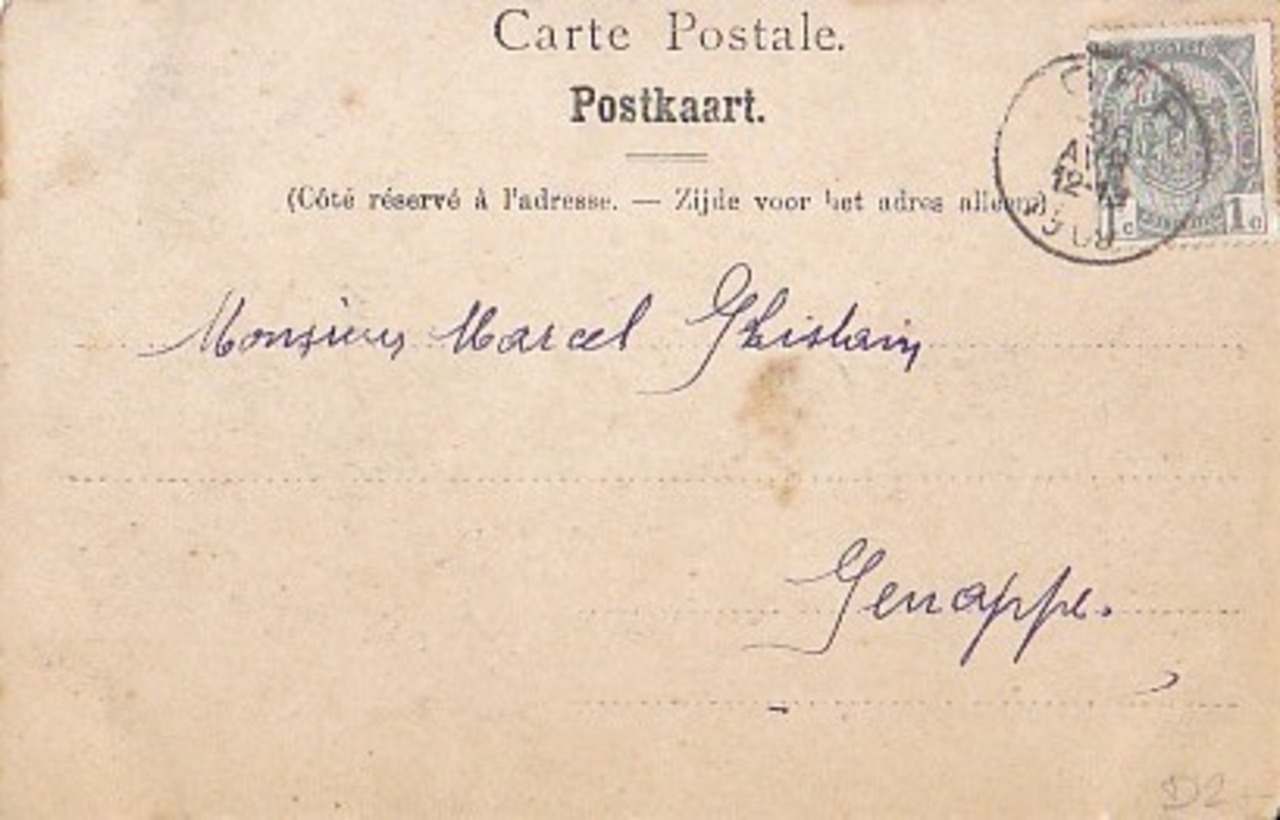 Carte Postale.
Postkaart.
(Côté réservé à l'adresse. — Zijde voor het adres alleen)
1c 1c
Monsieur Marcel Ghislain
Genappe.
D2-